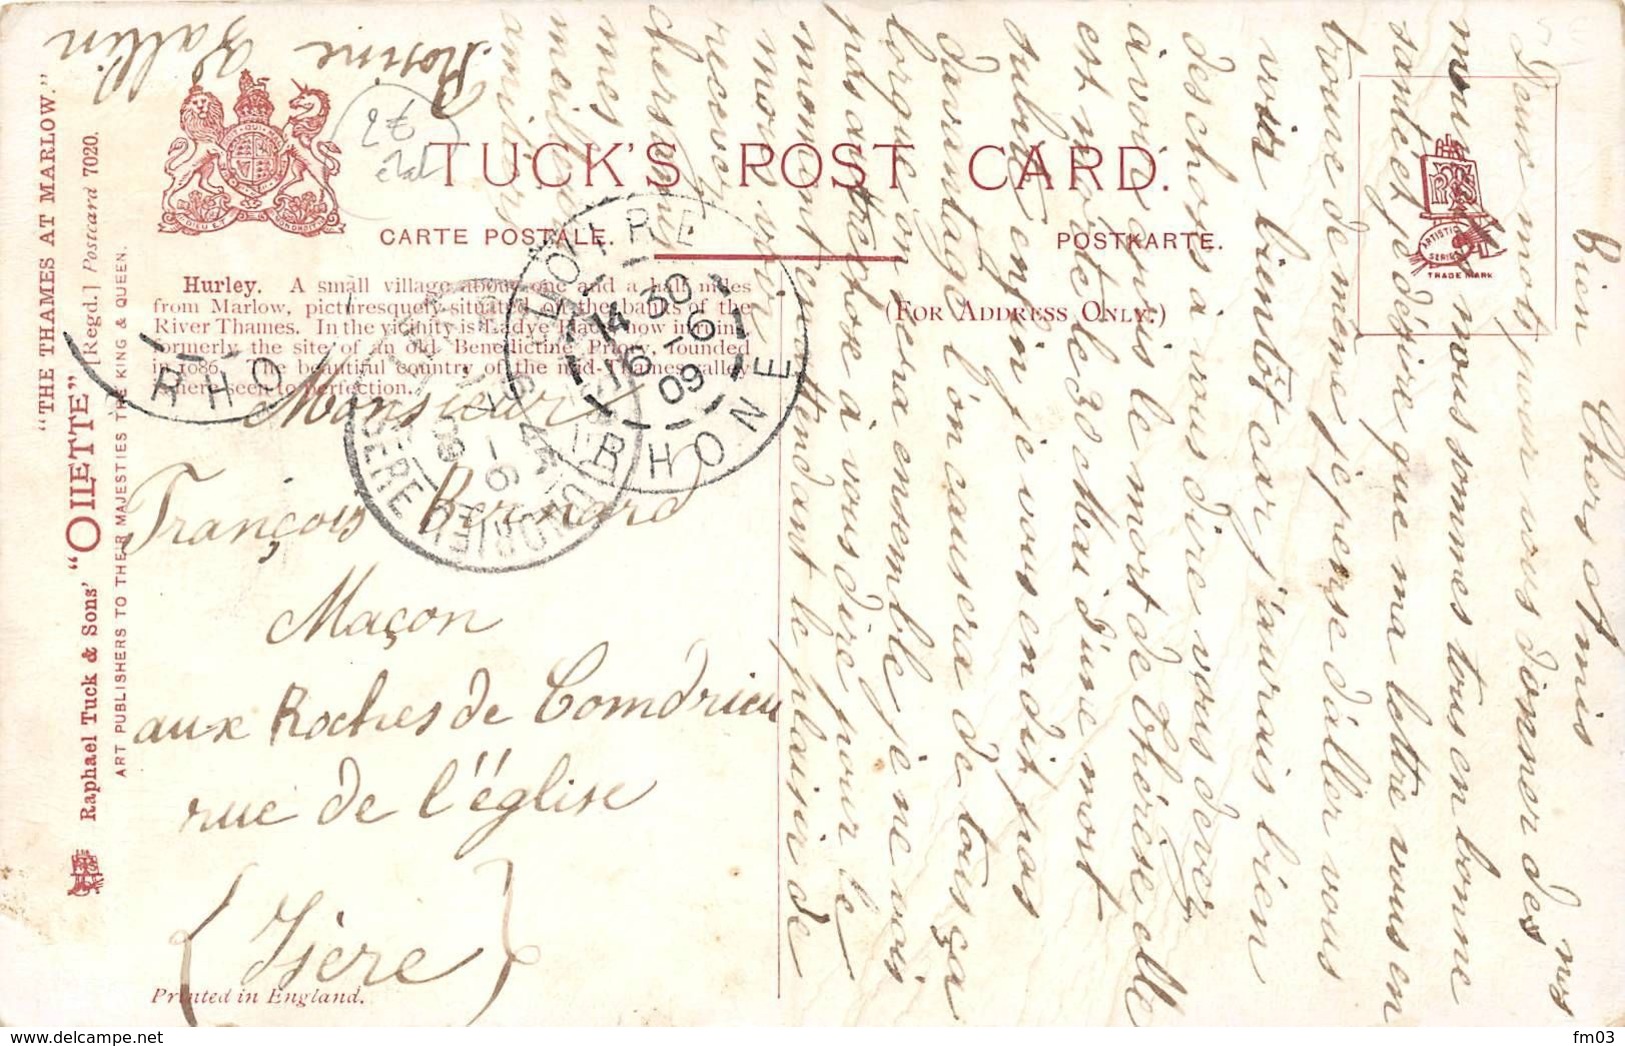 "THE THAMES AT MARLOW."
[Regd.] Postcard 7020.
Raphael Tuck & Sons' "OILETTE"
ART PUBLISHERS TO THEIR MAJESTIES THE KING & QUEEN.
2€
TUCK'S POST CARD.
CARTE POSTALE.
POSTKARTE.
(FOR ADDRESS ONLY.)
ARTISTIC
SERIES
TRADE MARK
Hurley. A small village about one and a half miles
from Marlow, picturesquely situated on the banks of the
River Thames. In the vicinity is Ladye Place now in ruins
formerly the site of an old Benedictine Priory, founded
in 1086. The beautiful country of the mid-Thames valley
is here seen to perfection.
RHO
RHONE
14 30
16 - 6
09
ISERE
Monsieur
François Bernard
Maçon
aux Roches de Comdrieu
rue de l'église
(Isère)
Printed in England.
Bien Chers Amis
Deux mots pour vous donner des nos
nous sommes tous en bonne
santé et je désire que ma lettre vous en
trouve de même je pense d'aller vous
voir bientôt car j'aurais bien
des choses à vous dire vous devez
avoir apris le mort de Thérèse elle
est morte le 30 Mai d'une mort
subite enfin je vous en dit pas
davantage l'on causera de tous ça
lorque l'on sera ensemble je ne vois
pas autrechose à vous dire pour le
moment en attendant le plaisir de
vous voir
recevez
chers amis
mes
meilleurs
amitiés
Rosine Gallin
fm03